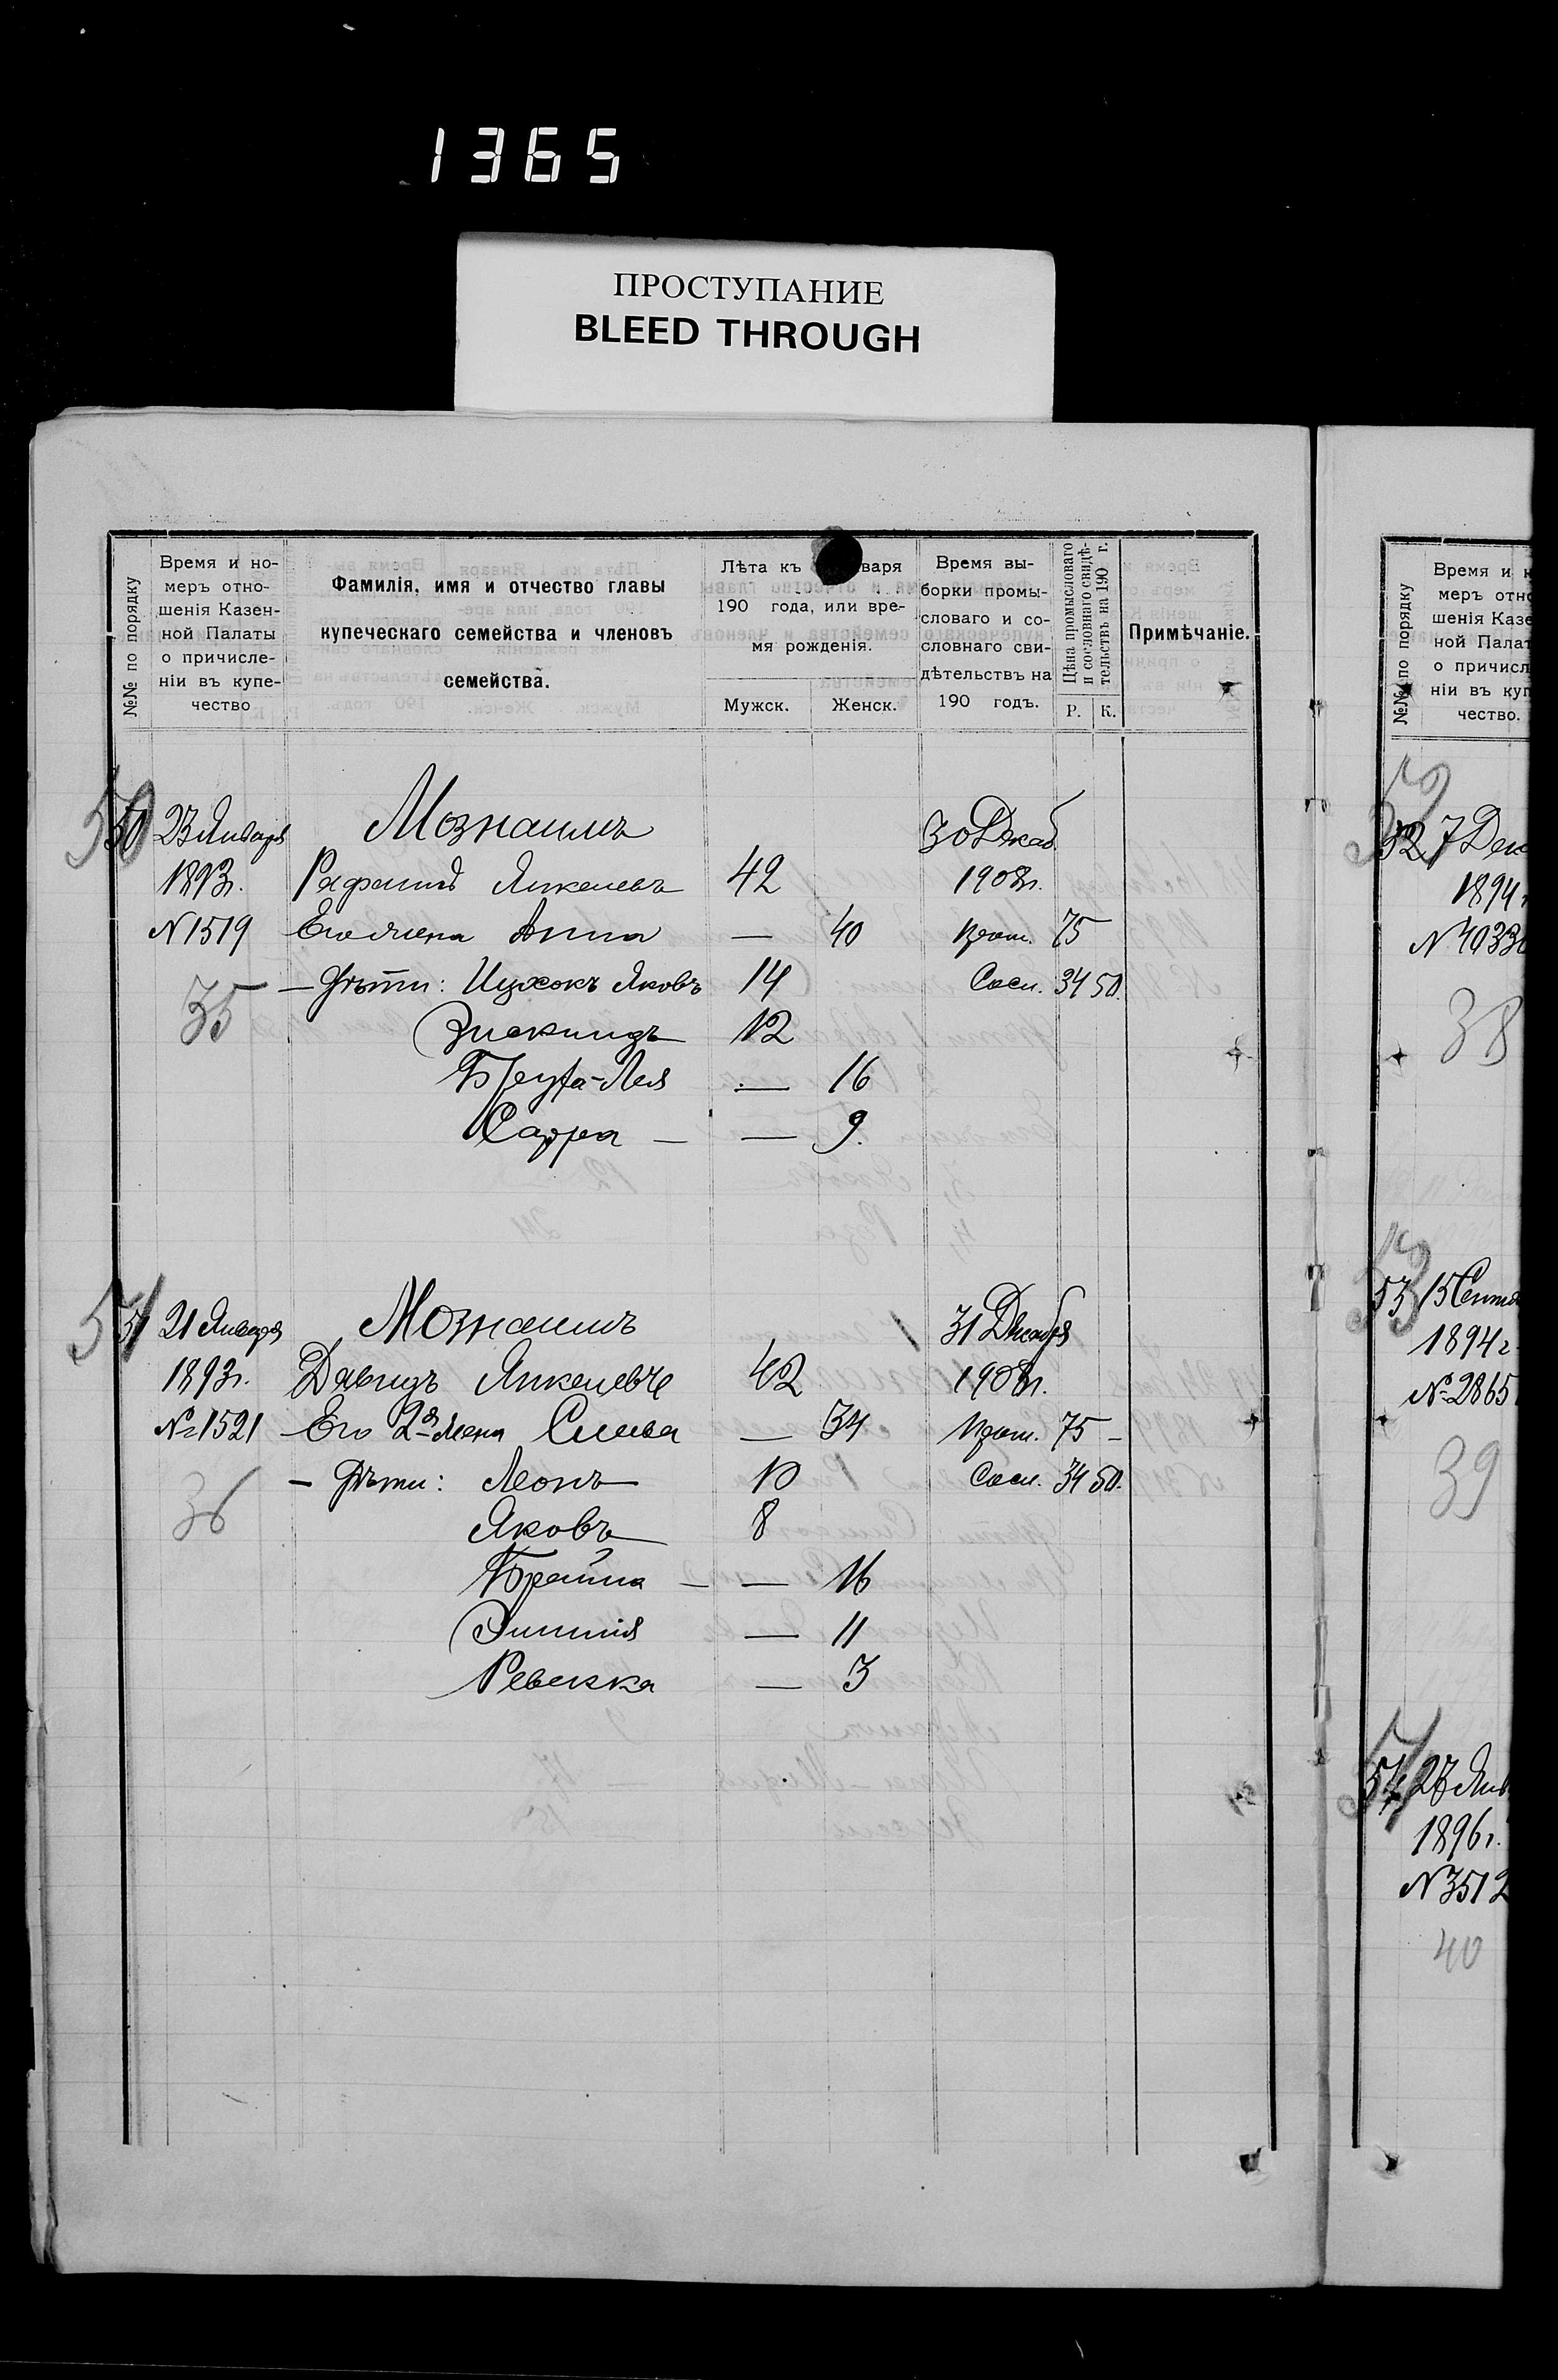 1365
ПРОСТУПАНИЕ
BLEED THROUGH
№№ по порядку
Время и но-
меръ отно-
шенія Казен-
ной Палаты
о причисле-
ніи въ купе-
чество
Фамилія, имя и отчество главы
купеческаго семейства и членовъ
семейства.
Лѣта къ варя
190 года, или вре-
мя рожденія.
Мужск. Женск.
Время вы-
борки промы-
словаго и со-
словнаго сви-
дѣтельствъ на
190 годъ.
Цѣна промысловаго
и сословнаго свидѣ-
тельствъ на 190 г.
Р. К.
Примѣчаніе.
50 50 23 Января 30 Декаб.
1893г. Рафаилъ Янкелевъ 42 1908г.
N 1519 Его жена Анна — 40 пром. 75
35 — Дѣти: Ицхокъ Яковъ 14 Сосл. 34 50.
Зискиндъ 12
Лея — 16
Сарра — — 9.
51 51 21 Января 31 Декабря
1893г. Давидъ Янкелевъ 42 1908г.
№ 1521 Его 2я жена — 34 пром. 75 —
36 — Дѣти: Леонъ 10 Сосл. 34 50.
Яковъ 8
Брайна — — 16
— 11
Ревекка — 3
№№ по порядку
Время и н
меръ отно
шенія Казе
ной Палат
о причисл
ніи въ куп
чество.
52 7 Дек
1894
N 4033
38
53 53 15 Сентя
1894 г.
№ 2865
39
54 54 23 Янв
1896г.
N 3512
40